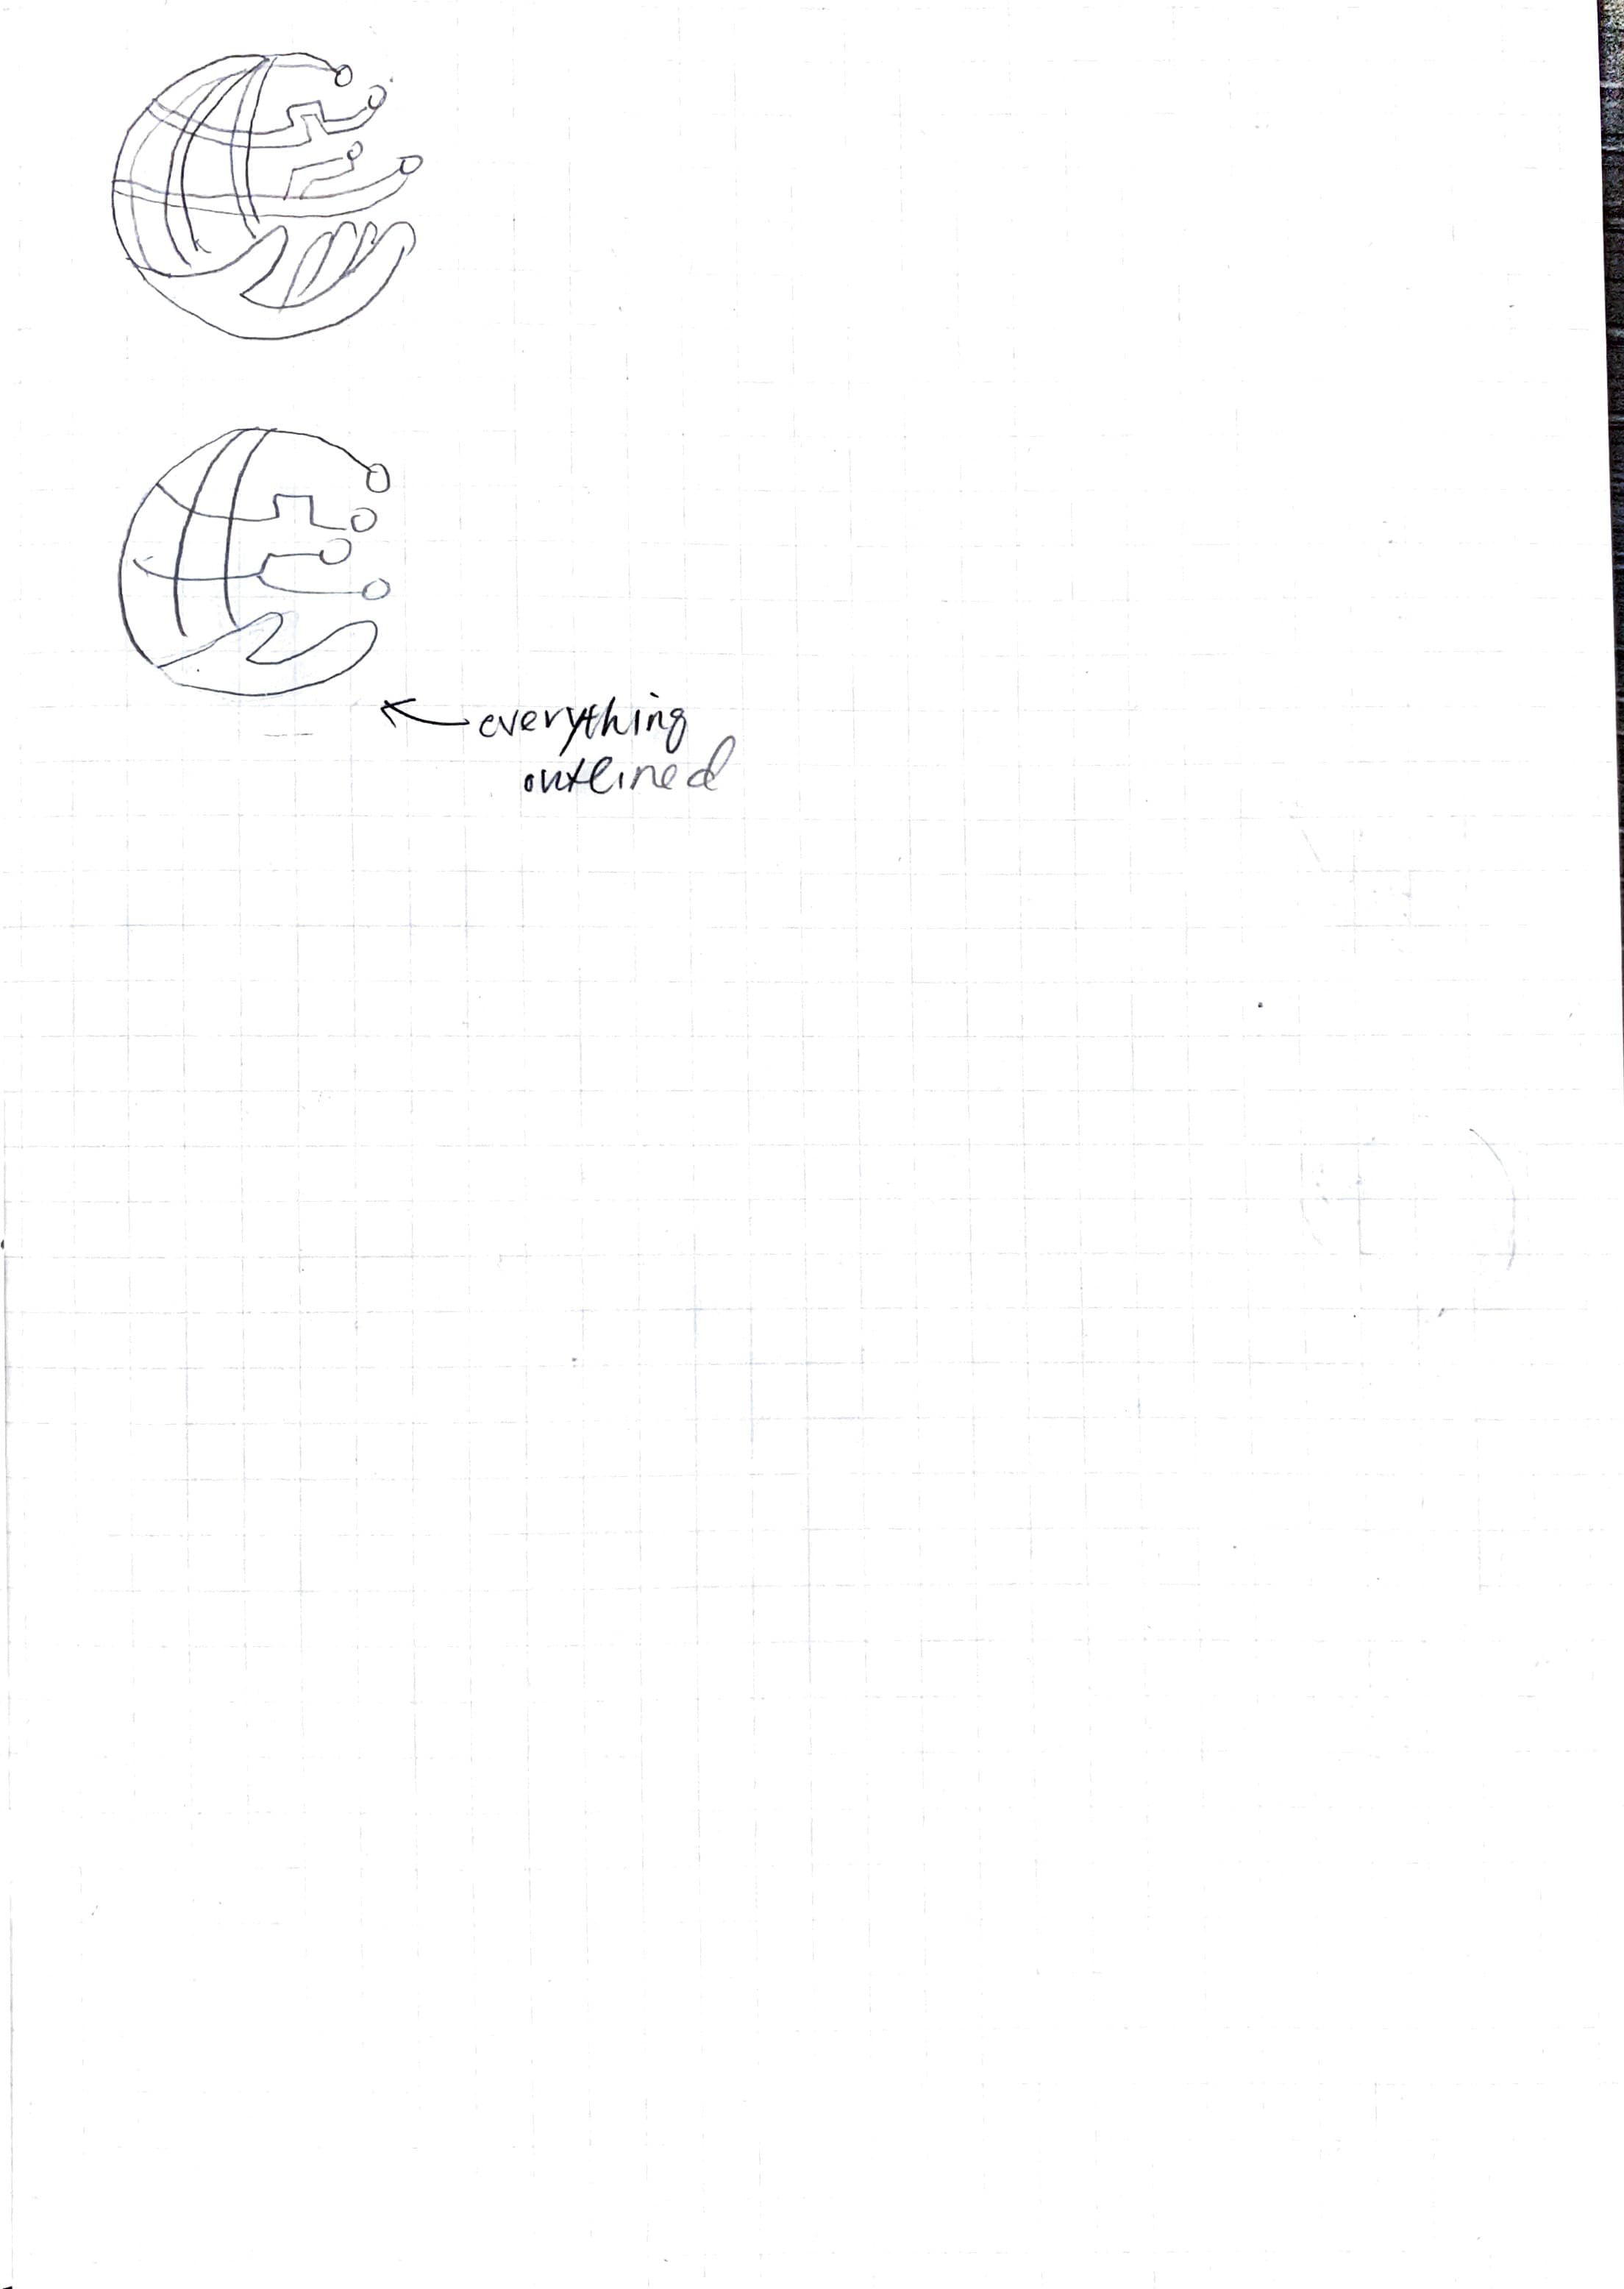 everything
outlined